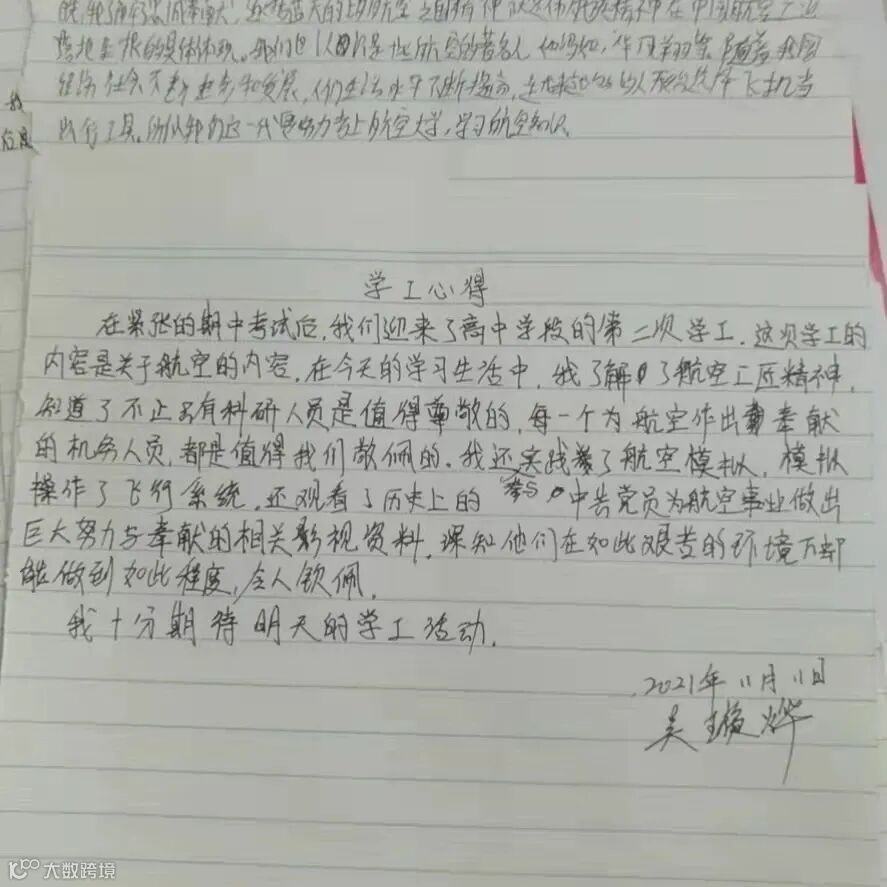 经济社会不断进步和发展,人们生活水平不断提高,
出行工具,所以我们这一代要努力考上航空大学,学习航空知识
学工心得
在紧张的期中考试后,我们迎来了高中学段的第二次学工,这次学工的
内容是关于航空的内容,在今天的学习生活中,我了解了航空工匠精神,
知道了不止只有科研人员是值得尊敬的,每一个为航空作出奉献
的机务人员,都是值得我们敬佩的。我还实践了航空模拟,模拟
操作了飞行系统,还观看了历史上的中共党员为航空事业做出
巨大努力与奉献的相关影视资料,深知他们在如此艰苦的环境下却
能做到如此程度,令人钦佩,
我十分期待明天的学工活动,
2021年11月11日
大数跨境